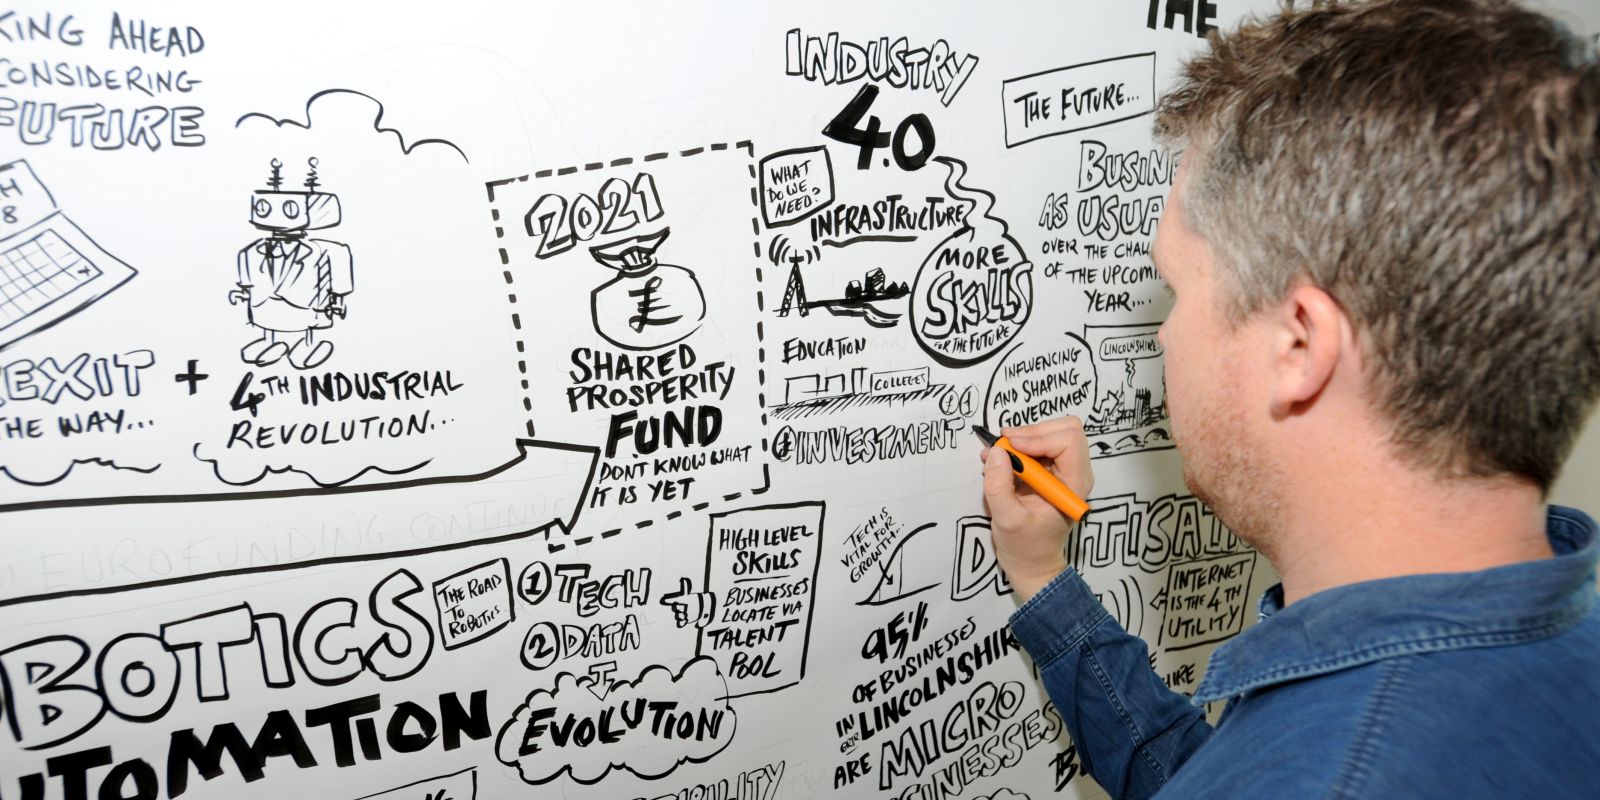 KING AHEAD
CONSIDERING
FUTURE
H
8
EXIT
THE WAY...
+
4TH INDUSTRIAL
REVOLUTION...
2021
£
SHARED
PROSPERITY
FUND
DONT KNOW WHAT
IT IS YET
INDUSTRY
4.0
WHAT
DO WE
NEED?
INFRASTRUCTURE
MORE
SKILLS
FOR THE FUTURE
EDUCATION
COLLEGES
£ INVESTMENT
THE
THE FUTURE...
BUSINE
AS USUA
OVER THE CHALL
OF THE UPCOMI
YEAR....
INFLUENCING
AND SHAPING
GOVERNMENT
LINCOLNSHIRE
EURO FUNDING CONTINUE
BOTICS
UTOMATION
THE ROAD
TO
ROBOTICS
1 TECH
2 DATA
EVOLUTION
HIGH LEVEL
SKILLS
BUSINESSES
LOCATE VIA
TALENT
POOL
TECH IS
VITAL FOR
GROWTH...
95%
OF BUSINESSES
IN LINCOLNSHIR
ARE MICRO
BUSINESSES
INTERNET
IS THE 4TH
UTILITY
HIRE
IBILITY